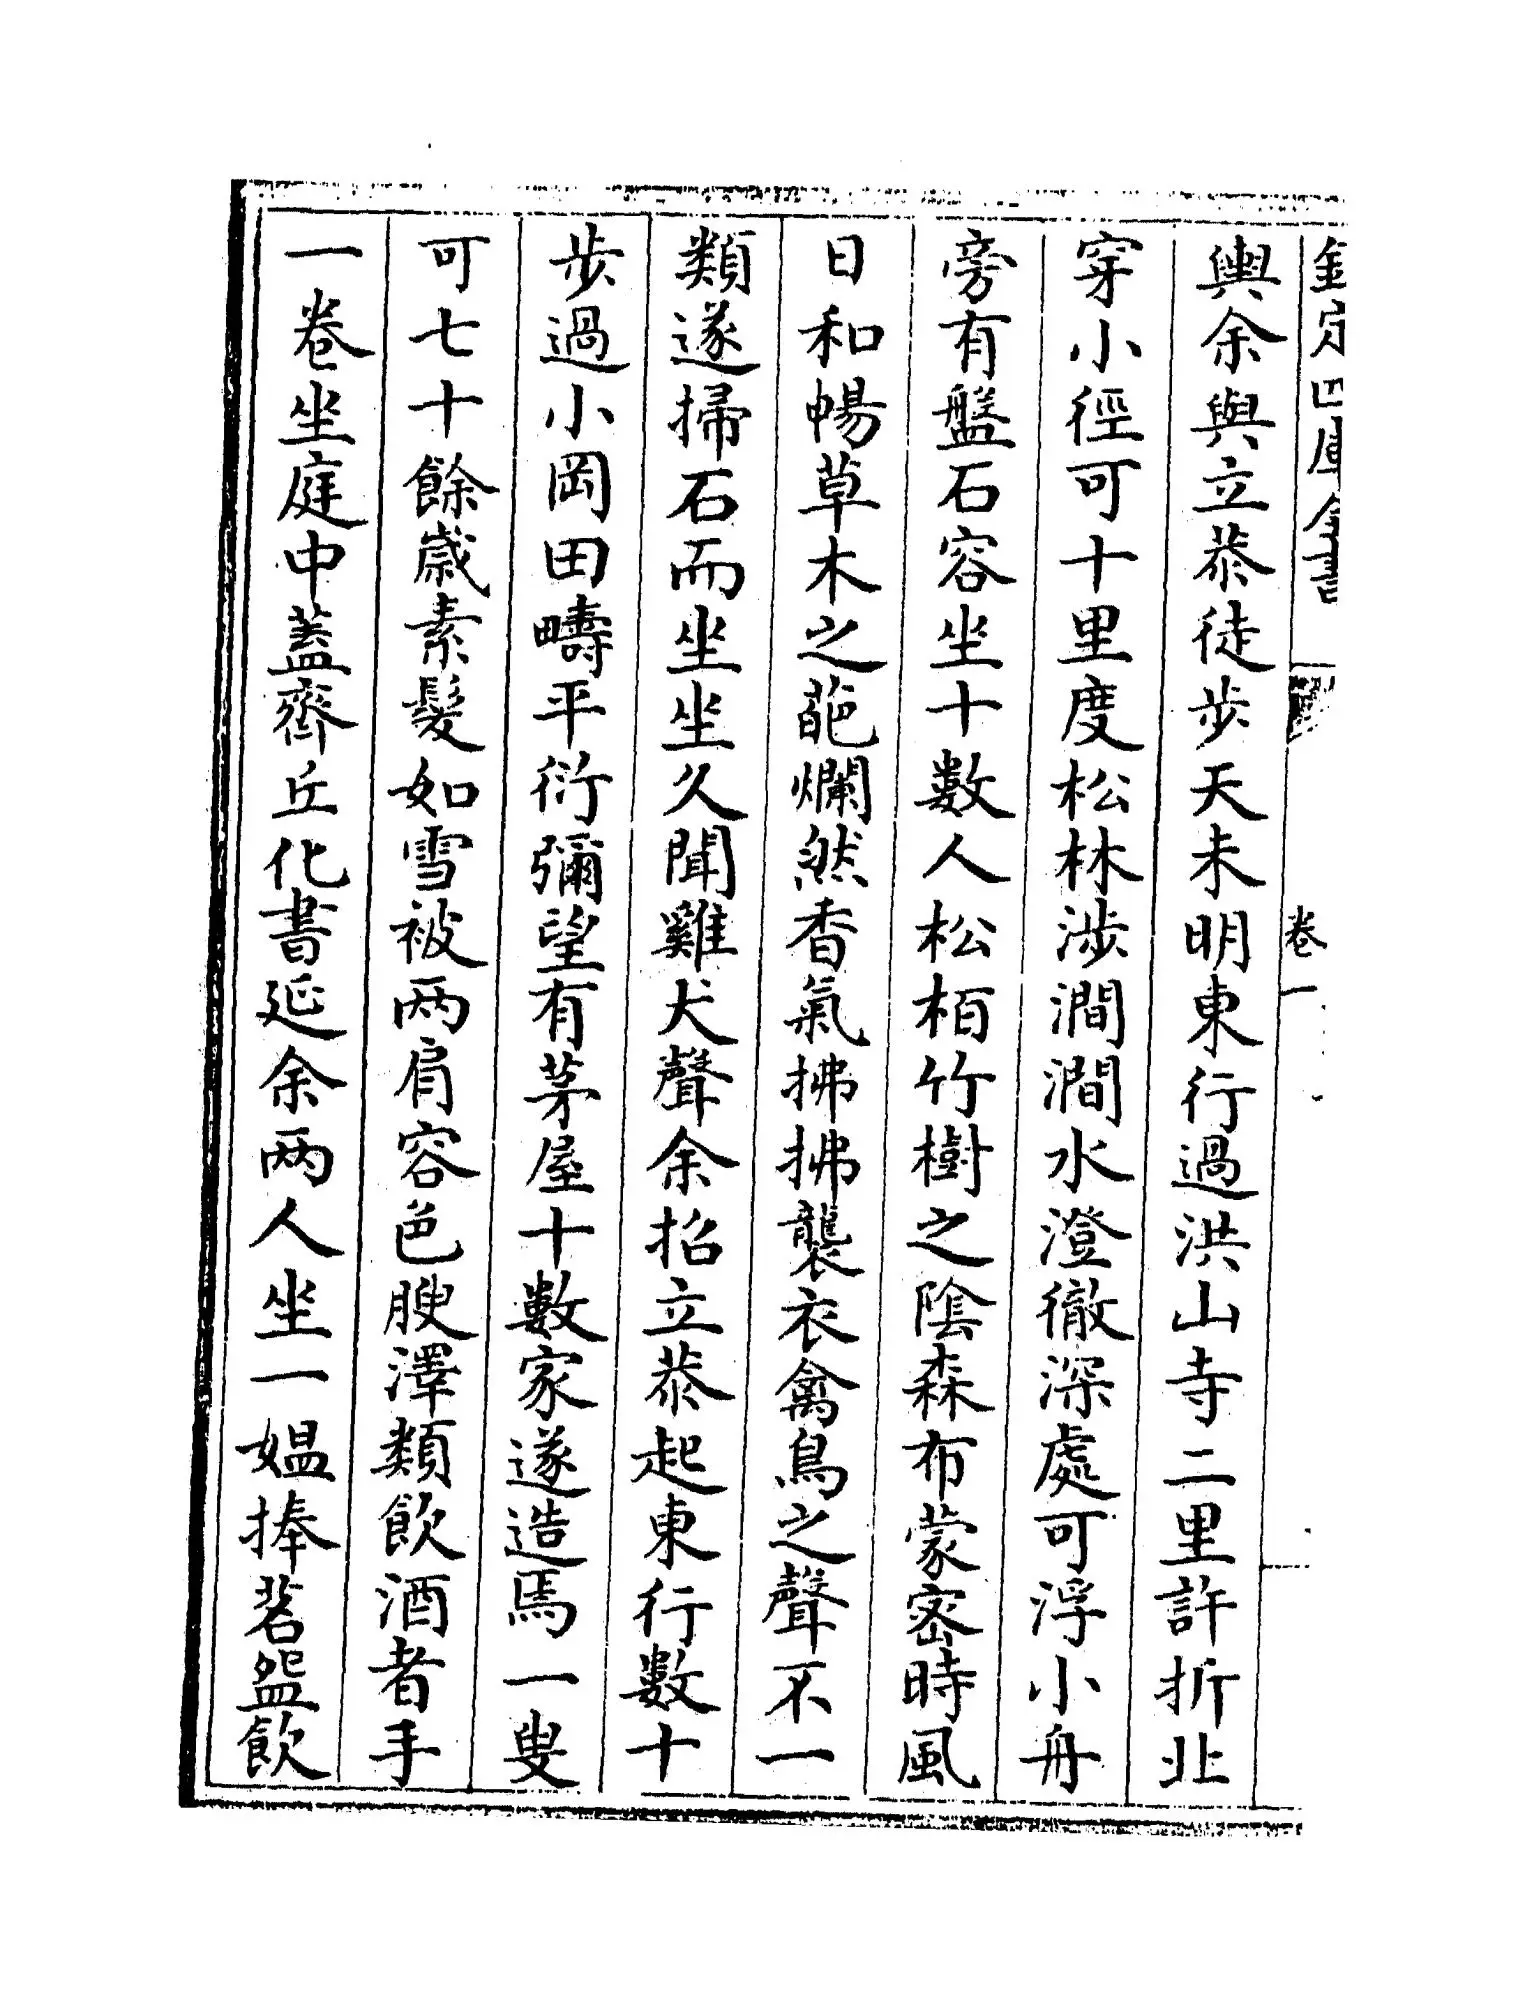 欽定四庫全書
卷一
輿余與立恭徒步天未明東行過洪山寺二里許折北
穿小徑可十里度松林涉澗澗水澄徹深處可浮小舟
旁有盤石容坐十數人松栢竹樹之陰森布蒙密時風
日和暢草木之葩爛然香氣拂拂襲衣禽鳥之聲不一
類遂掃石而坐坐久聞雞犬聲余招立恭起東行數十
步過小岡田疇平衍彌望有茅屋十數家遂造焉一叟
可七十餘歲素髮如雪被两肩容色腴澤類飲酒者手
一卷坐庭中蓋齊丘化書延余两人坐一媪捧茗盌飲